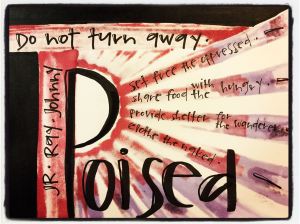 Do not turn away.
set free the oppressed.
share food with the hungry.
provide shelter for the wanderer
clothe the naked.
JR. Ray. Johnny
Poised